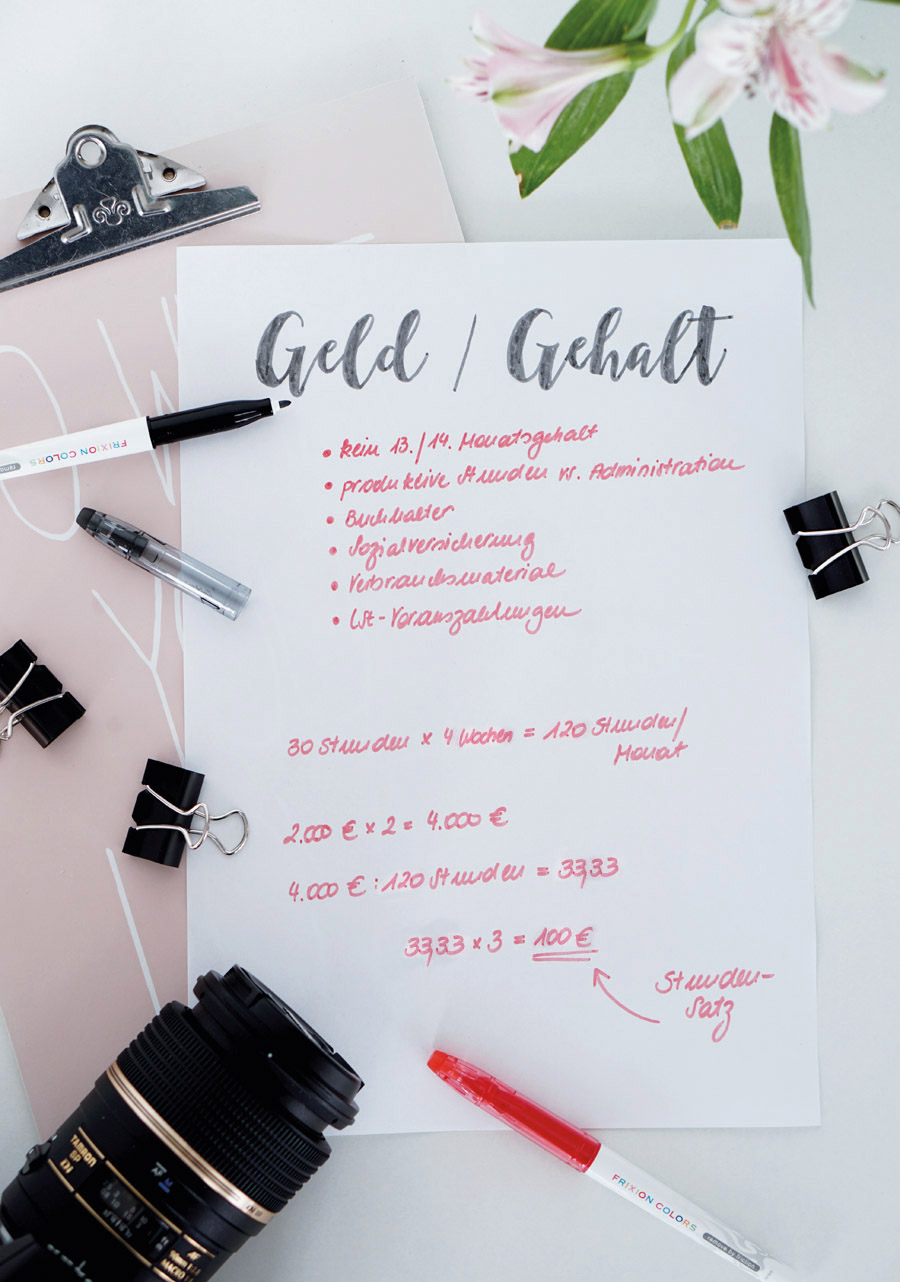 Geld / Gehalt
• kein 13./14. Monatsgehalt
• produktive Stunden vs. Administration
• Buchhalter
• Sozialversicherung
• Verbrauchsmaterial
• ESt-Vorauszahlungen
30 Stunden x 4 Wochen = 120 Stunden/
Monat
2.000 € x 2 = 4.000 €
4.000 € : 120 Stunden = 33,33
33,33 x 3 = 100 €
Stunden-
satz
FRIXION COLORS
TAMRON
SP
Di
AF
M
AF
MACRO
FRIXION COLORS
remove by friction